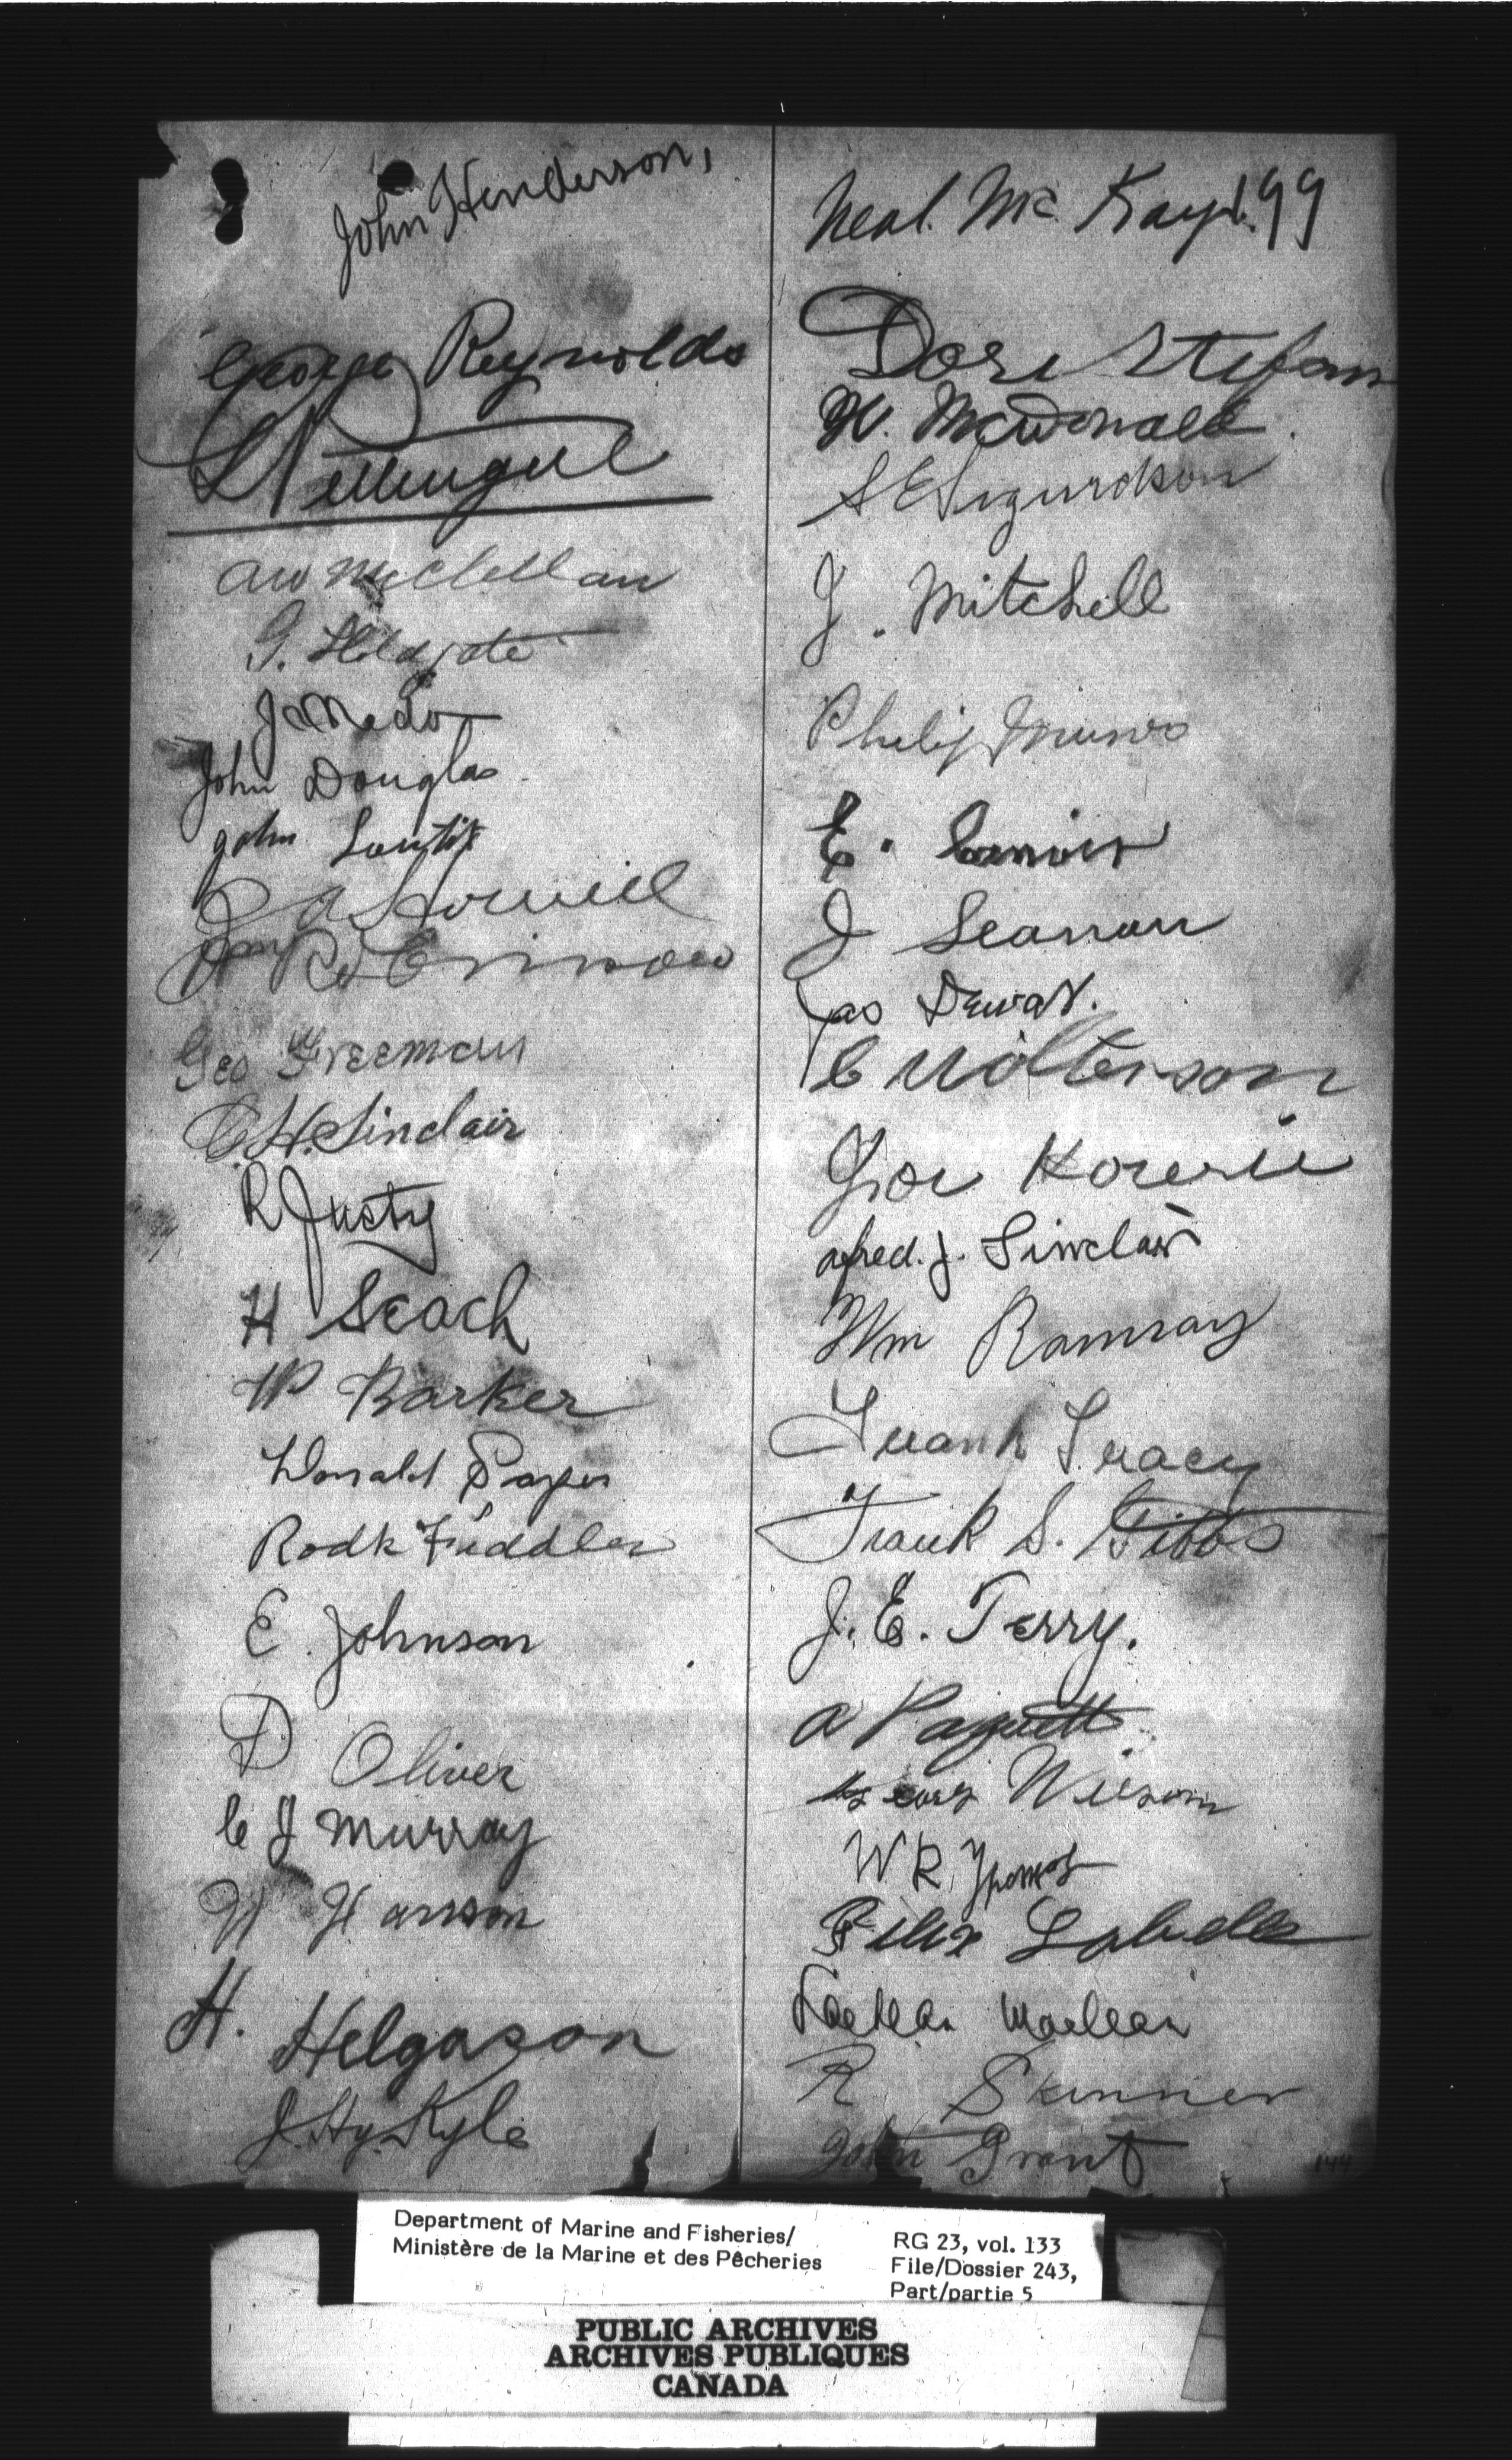 John Henderson,
George Reynolds
AW McClellan
G. Holdgate
John Douglas
John
Geo Freeman
C. H. Sinclair
R Justy
H Scach
W Barker
Donald
Rodk
E. Johnson
D Oliver
C J Murray
W Hanson
H. Helgason
J. Hy. Kyle
Neal. Mc. Kay 199
Dori Stefan
W. McDonald.
S E Sigurdson
J. Mitchell
Philip Munro
E.
J Seaman
Jas Dewar.
C
Alfred. J. Sinclair
Wm Ramsay
Frank Tracy
Frank S. Gibbs
J. E. Terry.
A Paquett
Wilson
W R. Thomas
Felix Labelle
Maclean
R Skinner
John Grant
144
Department of Marine and Fisheries/
Ministère de la Marine et des Pêcheries
RG 23, vol. 133
File/Dossier 243,
Part/partie 5
PUBLIC ARCHIVES
ARCHIVES PUBLIQUES
CANADA